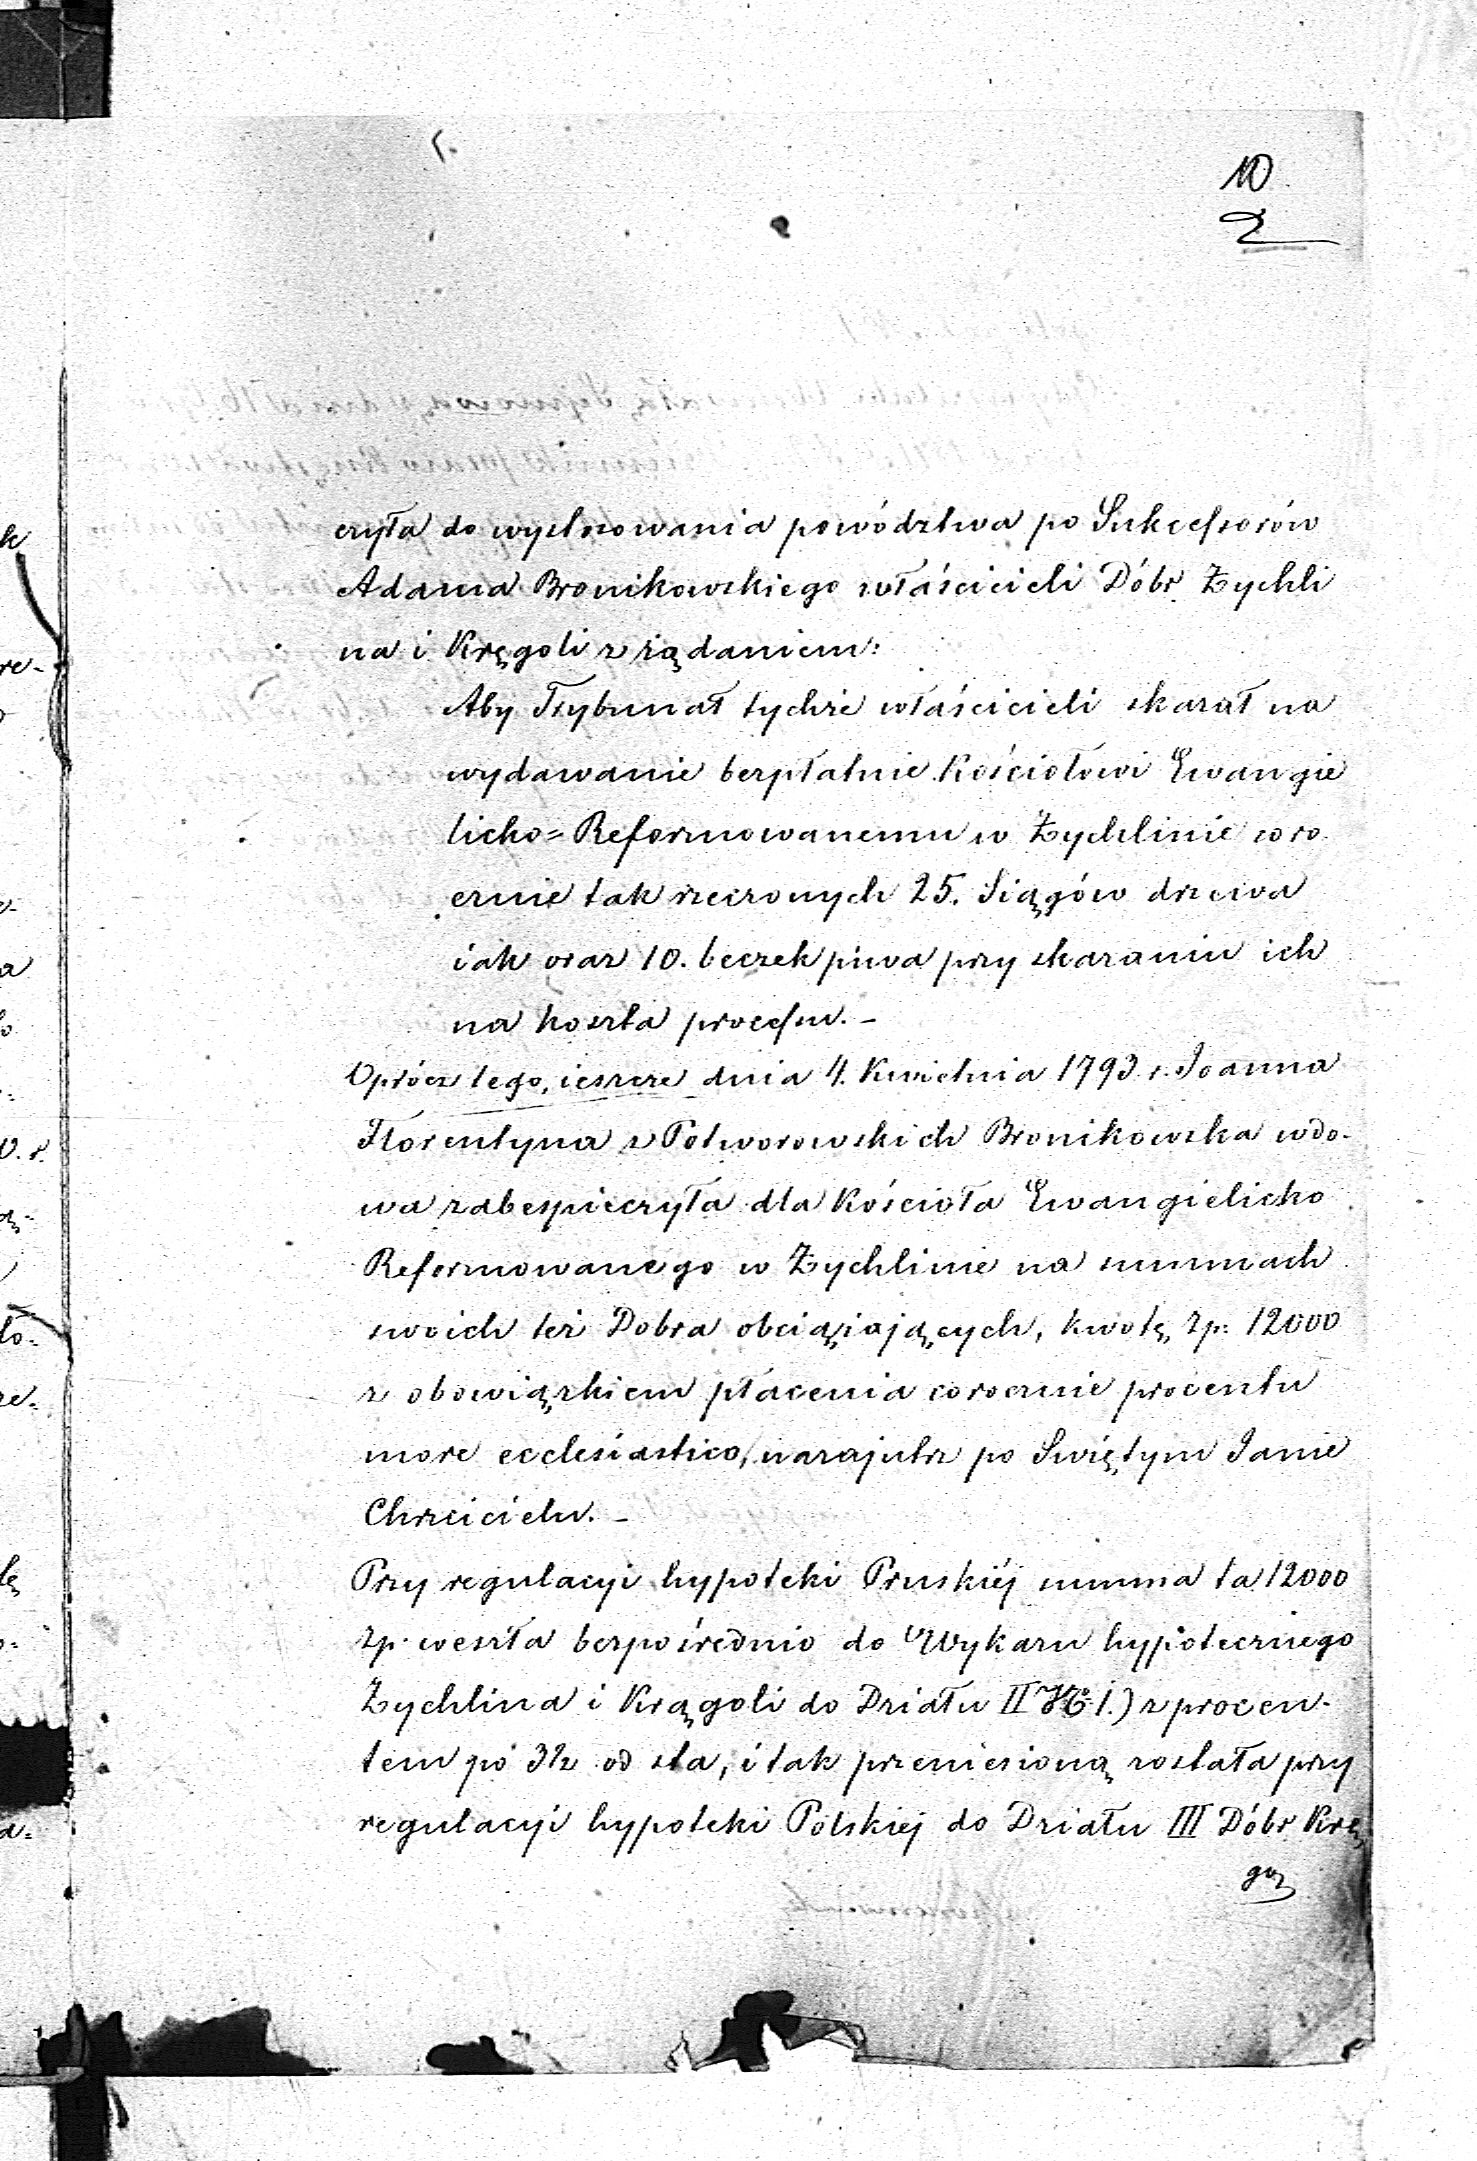 10
2
czyła do wystosowania powództwa po Sukcessorów
Adama Bronikowskiego właścicieli Dóbr Żychli
na i Kręgoli z żądaniem:
Aby Trybunał tychże właścicieli skazał na
wydawanie bezpłatnie Kościołowi Ewangie
licko=Reformowanemu w Żychlinie coro
cznie tak rzeczonych 25. Siągów drzewa
iak oraz 10. beczek piwa przy skazaniu ich
na koszta processu. –
Oprócz tego, ieszcze dnia 4. Kwietnia 1793 r. Joanna
Florentyna z Potworowskich Bronikowska wdo-
wa zabespieczyła dla Kościoła Ewangielicko
Reformowanego w Żychlinie na summach
swoich też Dobra obciążaiących, kwotę zp: 12000
z obowiązkiem płacenia corocznie procentu
more ecclesiastico, nazajutrz po Świętym Janie
Chrzcicielu. –
Przy regulacyi hypoteki Pruskiéj summa ta 12000
zp. weszła bezpośrednio do Wykazu hypotecznego
Żychlina i Krągoli do Działu II 1.) z procen-
tem po 3½ od sta, i tak przeniesioną została przy
regulacyi hypoteki Polskiej do Działu III Dóbr Krę